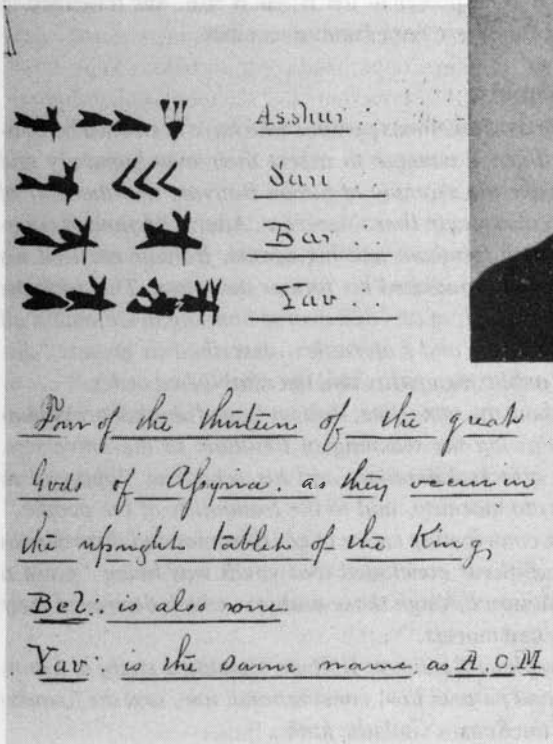 Asshur
San
Bar
Yav
Four of the thirteen of the great
Gods of Assyria as they occur in
the upright tablet of the King,
Bel: is also one
Yav: is the same name as A.O.M